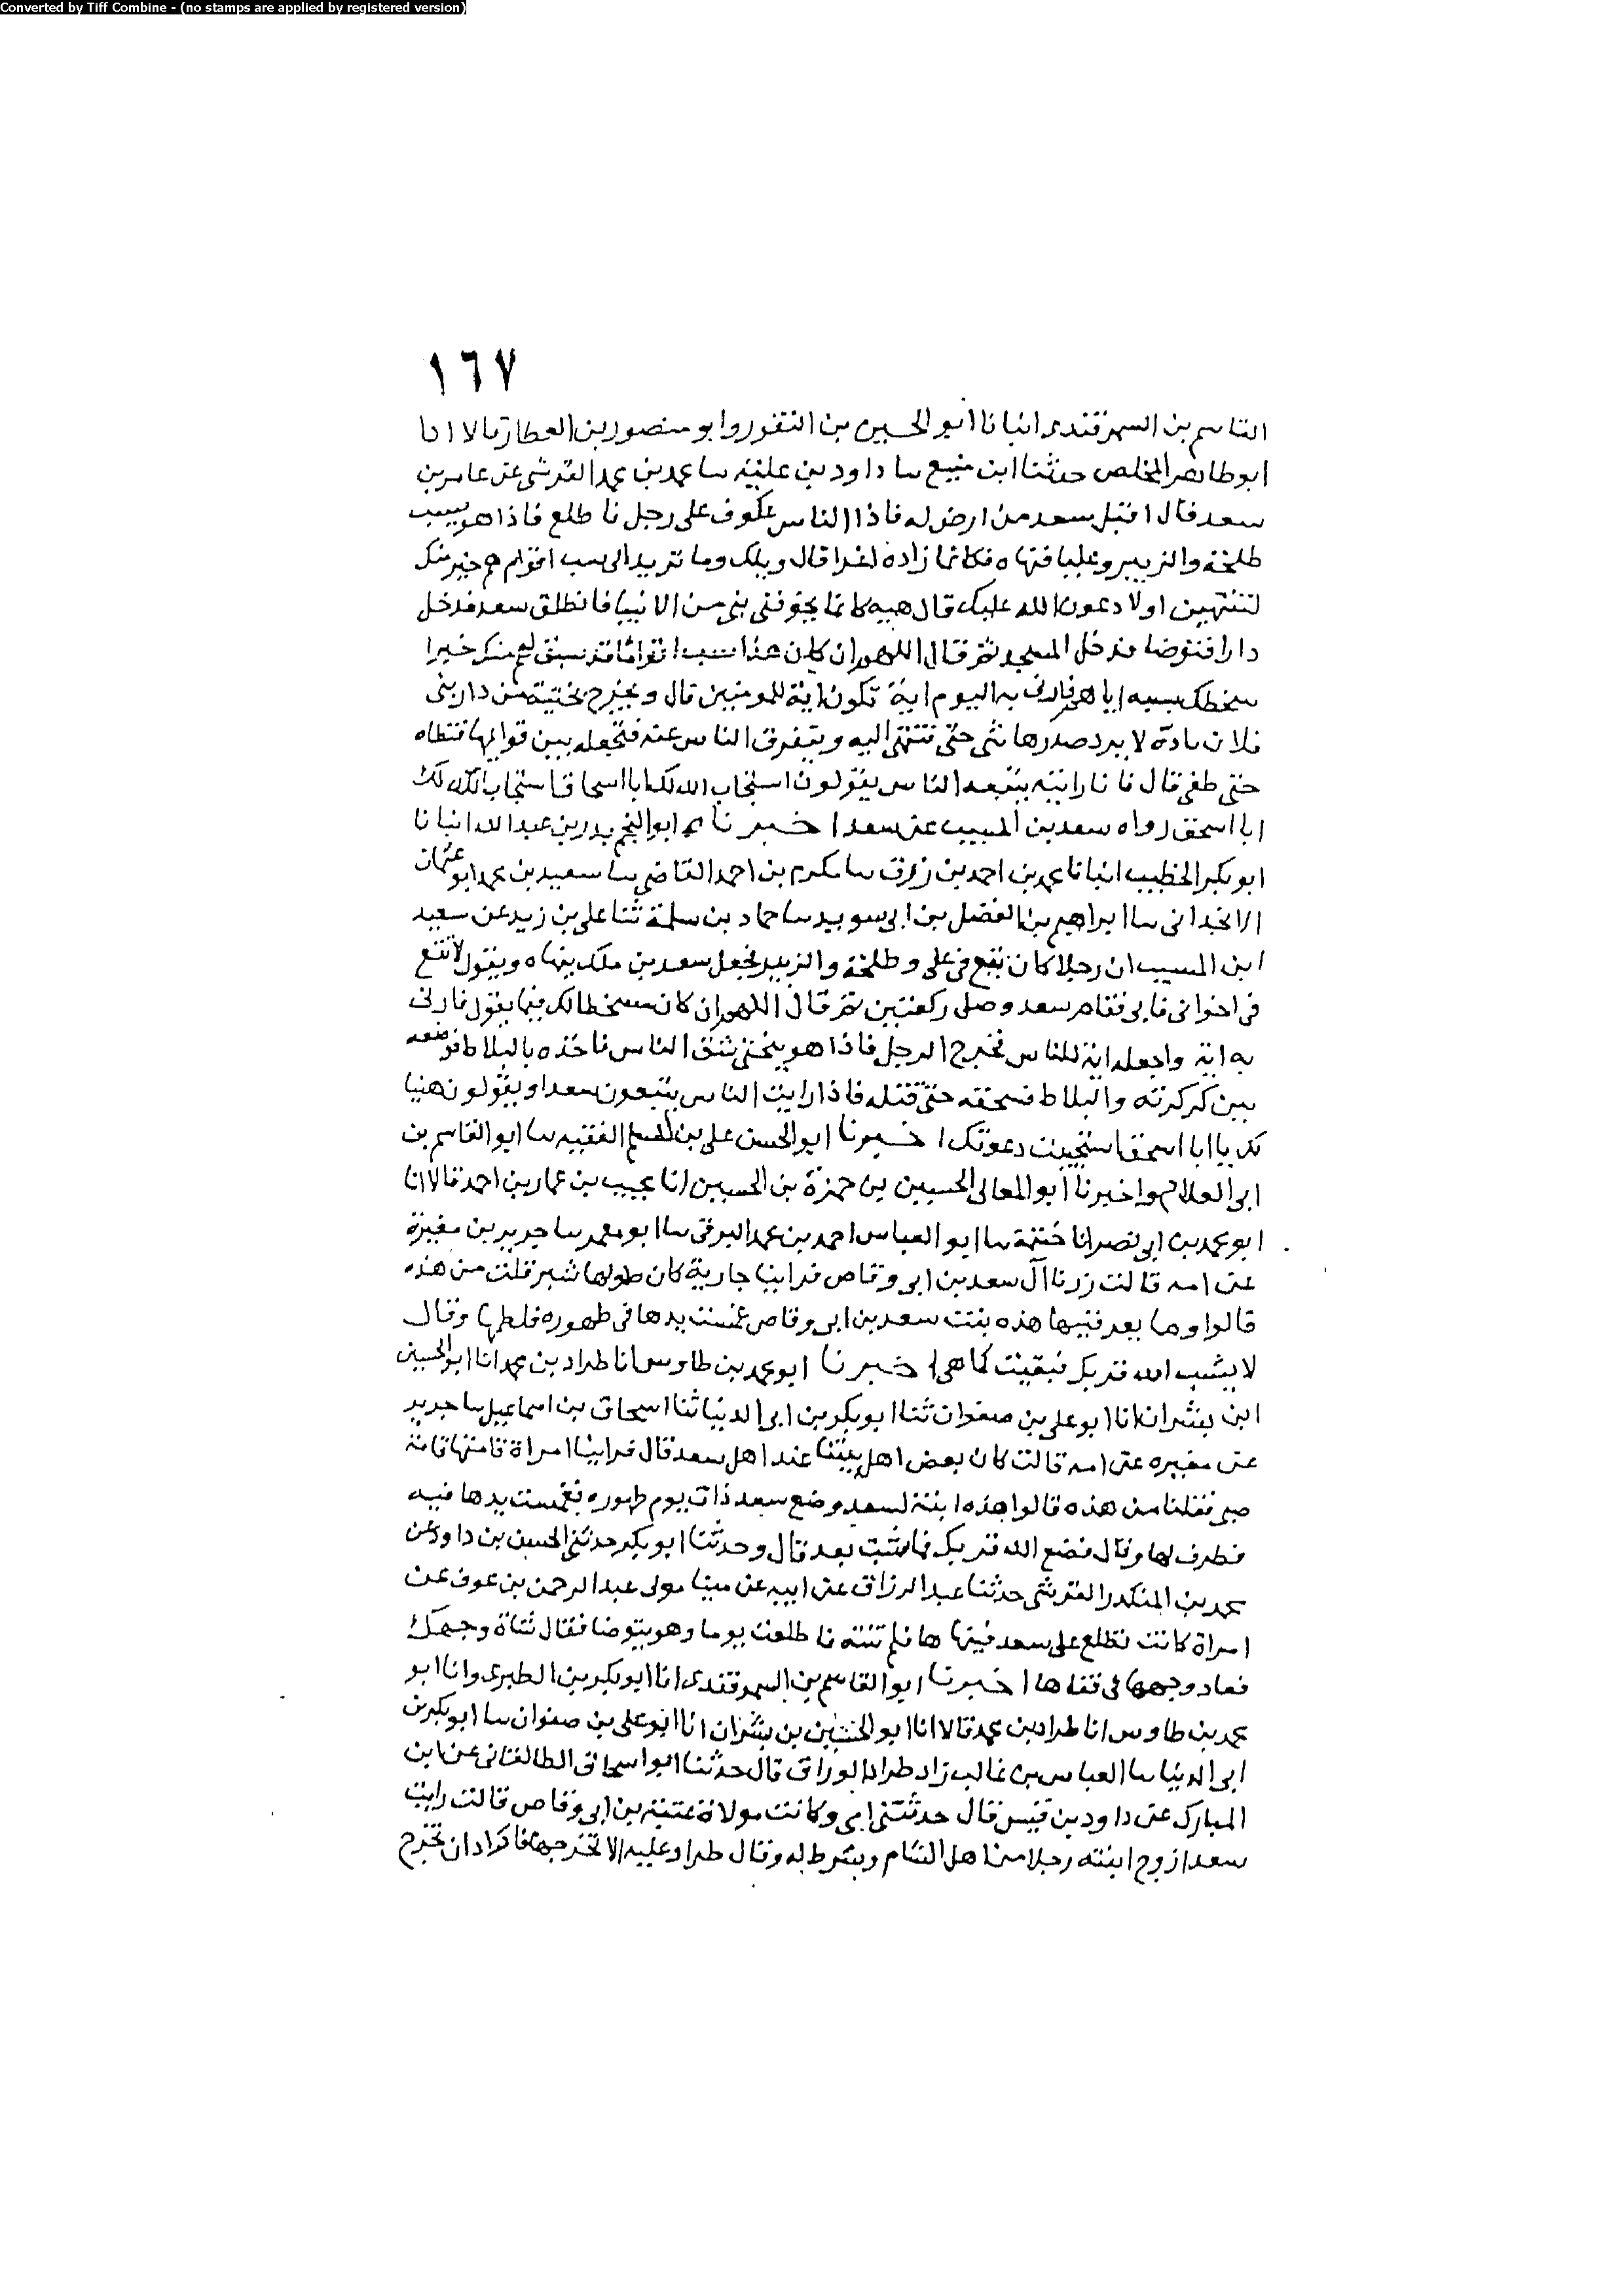 Converted by Tiff Combine - (no stamps are applied by registered version)
١٦٧
القاسم بن السمرقندى انبانا ابو الحسين بن النقور وابو منصور بن العطار قالا انا
ابو طاهر المخلص حدثنا ابن منيع سا داود بن علية سا محمد بن محمد القرشى عن عامر بن
سعد قال اقبل سعد من ارض له فاذا الناس عكوف على رجل فاطلع فاذا هو يسب
طلحة والزبير وعليا فنهاه فكانما زاده اغرا قال ويلك وما تريد الى سب اقوام هم خير منك
لتنتهين اولا دعون الله عليك قال هيه كانما يخوفنى نبى من الانبيا فانطلق سعد فدخل
دارا فتوضا ودخل المسجد ثم قال اللهم ان كان هذا سب اقواما قد سبق لهم منك خيرا
سخطك بسبه اياهم فارنى به اليوم اية تكون اية للمومنين قال ويخرج بختية من دار بنى
فلان نادة لا يرد صدرها شى حتى تنتهى اليه ويتفرق الناس عنه فتجعله بين قوايمها فتطاه
حتى طفى قال فانا رايته يتبعه الناس يقولون استجاب الله لك ابا اسحاق استجاب الله لك
ابا اسحق رواه سعد بن المسيب عن سعد اخبرنا به ابو النجم بدر بن عبد الله انبانا
ابو بكر الخطيب انبانا محمد بن احمد بن رزق سا مكرم بن احمد القاضى سا سعيد بن محمد ابو عثمان
الانجذانى سا ابراهيم بن الفضل بن ابى سويد سا حماد بن سلمة ثنا على بن زيد عن سعيد
ابن المسيب ان رجلا كان يقع فى على وطلحة والزبير فجعل سعد بن ملك ينهاه ويقول لا تقع
فى اخوانى فابى فقام سعد وصلى ركعتين ثم قال اللهم ان كان سخطا لك فيما يقول فارنى
به اية واجعله اية للناس فخرج الرجل فاذا هو ببختى يشق الناس فاخذه بالبلاط فوضعه
بين كركرته والبلاط فسحقه حتى قتله فاذا رايت الناس يتبعون سعدا ويقولون هنيا
لك يا ابا اسحق استجيبت دعوتك اخبرنا ابو الحسن على بن المسلم الفقيه سا ابو القاسم بن
ابى العلا ح واخبرنا ابو المعالى الحسين بن حمزة بن الحسين انا نجيب بن عمار بن احمد قالا انا
ابو محمد بن ابى نصر انا خيثمة سا ابو العباس احمد بن محمد البرقى سا ابو معمر سا جرير بن مغيرة
عن امه قالت زرنا آل سعد بن ابى وقاص فراينا جارية كان طولها شبر قلت من هذه
قالوا وما يعرفنيها هذه بنت سعد بن ابى وقاص غمست يدها فى طهوره فلطمها وقال
لا يشب الله قربك فبقيت كما هى اخبرنا ابو محمد بن طاوس انا طراد بن محمد انا ابو الحسين
ابن بشران انا ابو على بن صفوان ثنا ابو بكر بن ابى الدنيا ثنا اسحاق بن اسماعيل سا جرير
عن مغيره عن امه قالت كان بعض اهل بيتنا عند اهل سعد قال فراينا امراة قامتها قامة
صبى فقلنا من هذه قالوا هذه ابنة لسعد وضع سعد ذات يوم طهوره فغمست يدها فيه
فطرف لها وقال قضع الله قربك فما شبت بعد قال وحدثنا ابو بكر حدثنى الحسين بن داود عن
محمد بن المنكدر القرشى حدثنا عبد الرزاق عن ابيه عن مينا مولى عبد الرحمن بن عوف عن
امراة كانت تطلع على سعد فينهاها فلم تنته فاطلعت يوما وهو يتوضا فقال شاة وجهك
فعاد وجهها فى قفاها اخبرنا ابو القاسم بن السمرقندى انا ابو بكر بن الطبرى وانا ابو
محمد بن طاوس انا طراد بن محمد قالا انا ابو الحسين بن بشران انا ابو على بن صفوان سا ابو بكر بن
ابى الدنيا سا العباس بن غالب زاد طراد الوراق قال حدثنا ابو اسحاق الطالقانى عن ابن
المبارك عن داود بن قيس قال حدثتنى امى وكانت مولاة عتبة بن ابى وقاص قالت رايت
سعدا زوج ابنته رجلا من اهل الشام وشرط له وقال طراد عليه الا تخرجها فاراد ان تخرج